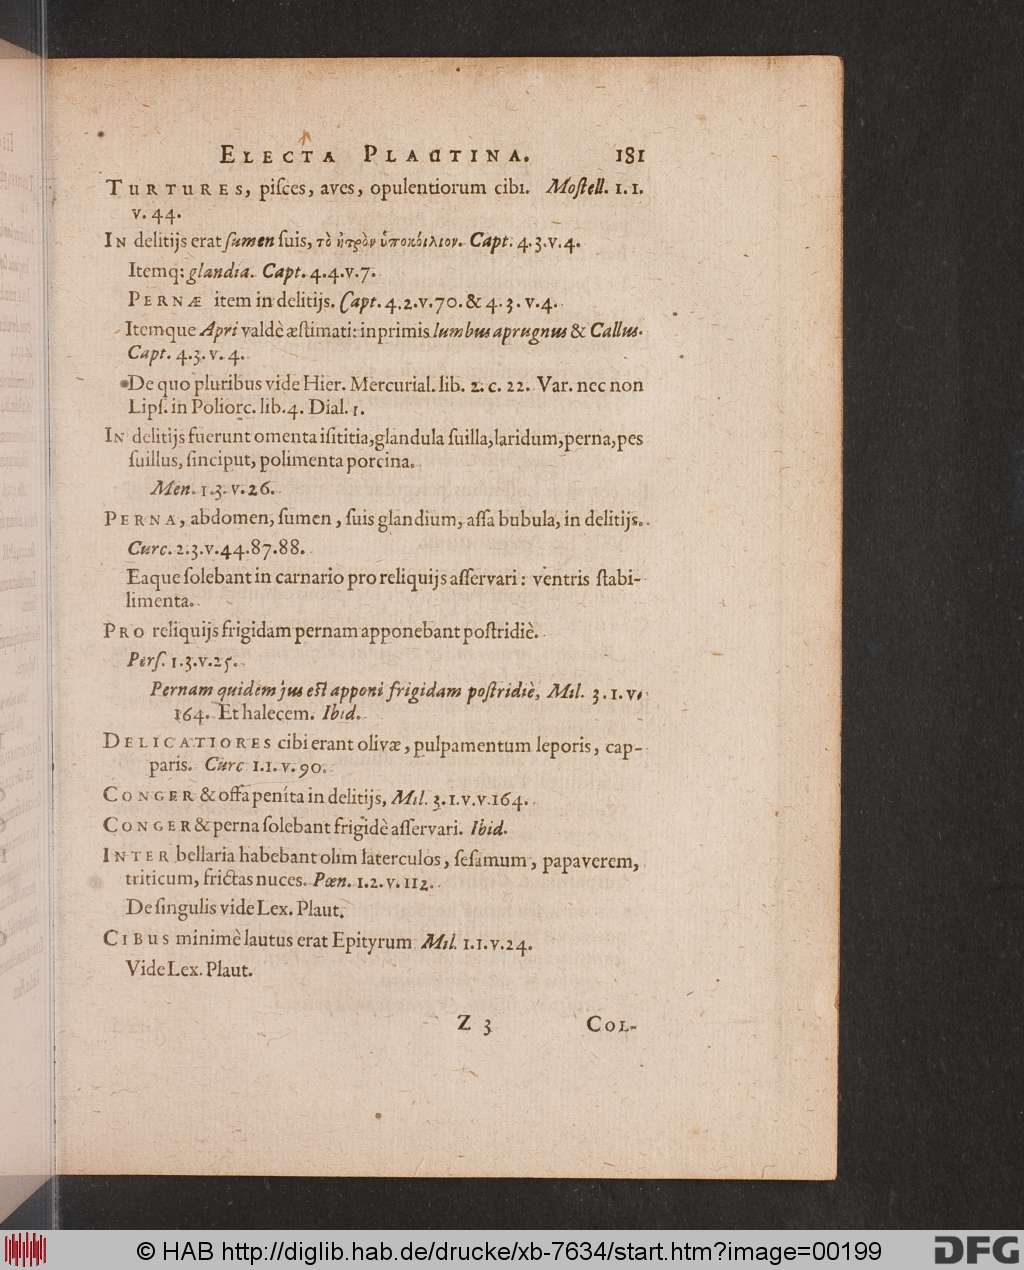 ELECTA PLAUTINA. 181
TURTURES, piſces, aves, opulentiorum cibi. Moſtell. 1.1.
v. 44.
IN delitijs erat ſumen ſuis, τὸ ἠτρὸν ὑποκόιλιον. Capt. 4.3.v.4.
Itemq: glandia. Capt. 4.4.v.7.
PERNÆ item in delitijs. Capt. 4.2.v.70. & 4.3.v.4.
Itemque Apri valdè æſtimati: inprimis lumbus aprugnus & Callus.
Capt. 4.3.v.4.
De quo pluribus vide Hier. Mercurial. lib. 2. c. 22. Var. nec non
Lipſ. in Poliorc. lib. 4. Dial. 1.
IN delitijs fuerunt omenta iſititia, glandula ſuilla, laridum, perna, pes
ſuillus, ſinciput, polimenta porcina.
Men. 1.3.v.26.
PERNA, abdomen, ſumen, ſuis glandium, aſſa bubula, in delitijs.
Curc. 2.3.v.44.87.88.
Eaque ſolebant in carnario pro reliquijs aſſervari: ventris ſtabi-
limenta.
PRO reliquijs frigidam pernam apponebant poſtridiè.
Perſ. 1.3.v.25.
Pernam quidem jus eſt apponi frigidam poſtridiè, Mil. 3.1.v.
164. Et halecem. Ibid.
DELICATIORES cibi erant olivæ, pulpamentum leporis, cap-
paris. Curc 1.1.v.90.
CONGER & offa penita in delitijs, Mil. 3.1.v.v.164.
CONGER & perna ſolebant frigidè aſſervari. Ibid.
INTER bellaria habebant olim laterculos, ſeſamum, papaverem,
triticum, frictas nuces. Pœn. 1.2.v.112.
De ſingulis vide Lex. Plaut.
CIBUS minimè lautus erat Epityrum Mil. 1.1.v.24.
Vide Lex. Plaut.
Z 3 COL-
© HAB http://diglib.hab.de/drucke/xb-7634/start.htm?image=00199
DFG